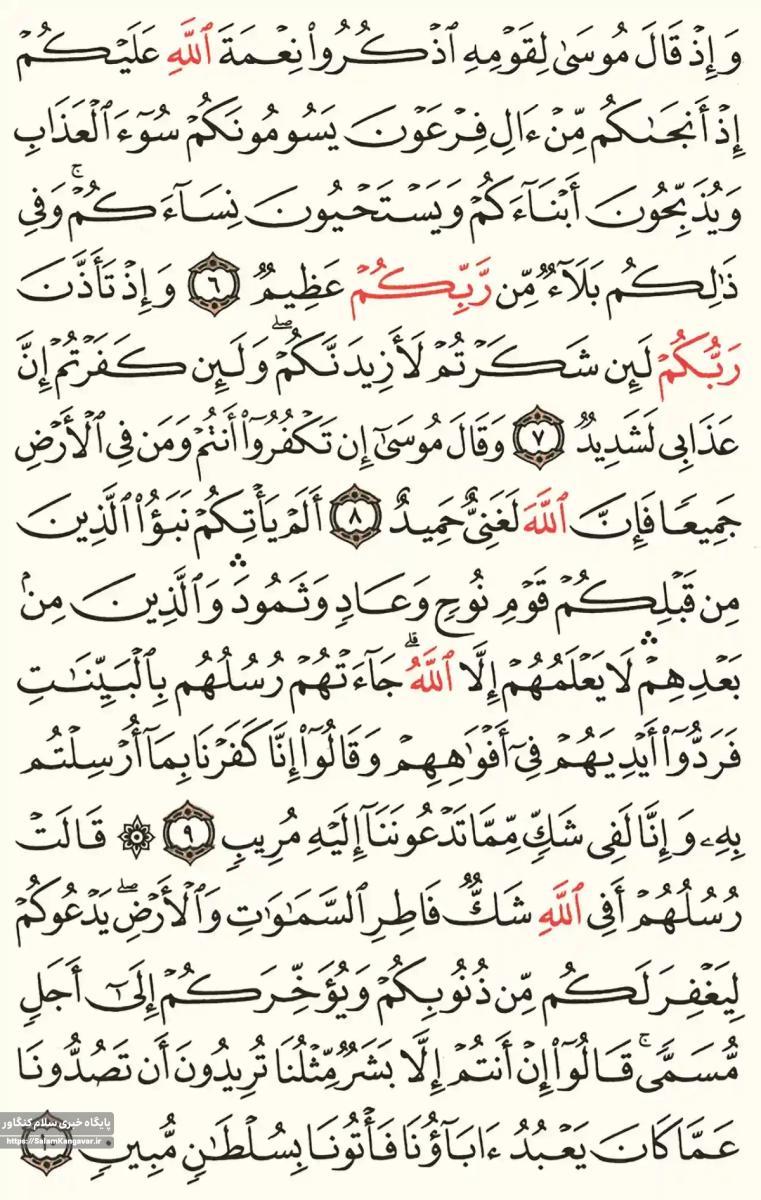 وَإِذۡ قَالَ مُوسَىٰ لِقَوۡمِهِ ٱذۡكُرُواْ نِعۡمَةَ ٱللَّهِ عَلَيۡكُمۡ
إِذۡ أَنجَىٰكُم مِّنۡ ءَالِ فِرۡعَوۡنَ يَسُومُونَكُمۡ سُوٓءَ ٱلۡعَذَابِ
وَيُذَبِّحُونَ أَبۡنَآءَكُمۡ وَيَسۡتَحۡيُونَ نِسَآءَكُمۡۚ وَفِي
ذَٰلِكُم بَلَآءٞ مِّن رَّبِّكُمۡ عَظِيمٞ ٦ وَإِذۡ تَأَذَّنَ
رَبُّكُمۡ لَئِن شَكَرۡتُمۡ لَأَزِيدَنَّكُمۡۖ وَلَئِن كَفَرۡتُمۡ إِنَّ
عَذَابِي لَشَدِيدٞ ٧ وَقَالَ مُوسَىٰٓ إِن تَكۡفُرُوٓاْ أَنتُمۡ وَمَن فِي ٱلۡأَرۡضِ
جَمِيعٗا فَإِنَّ ٱللَّهَ لَغَنِيٌّ حَمِيدٌ ٨ أَلَمۡ يَأۡتِكُمۡ نَبَؤُاْ ٱلَّذِينَ
مِن قَبۡلِكُمۡ قَوۡمِ نُوحٖ وَعَادٖ وَثَمُودَۛ وَٱلَّذِينَ مِنۢ
بَعۡدِهِمۡۛ لَا يَعۡلَمُهُمۡ إِلَّا ٱللَّهُۚ جَآءَتۡهُمۡ رُسُلُهُم بِٱلۡبَيِّنَٰتِ
فَرَدُّوٓاْ أَيۡدِيَهُمۡ فِيٓ أَفۡوَٰهِهِمۡ وَقَالُوٓاْ إِنَّا كَفَرۡنَا بِمَآ أُرۡسِلۡتُم
بِهِۦ وَإِنَّا لَفِي شَكّٖ مِّمَّا تَدۡعُونَنَآ إِلَيۡهِ مُرِيبٖ ٩ ۞ قَالَتۡ
رُسُلُهُمۡ أَفِي ٱللَّهِ شَكّٞ فَاطِرِ ٱلسَّمَٰوَٰتِ وَٱلۡأَرۡضِۖ يَدۡعُوكُمۡ
لِيَغۡفِرَ لَكُم مِّن ذُنُوبِكُمۡ وَيُؤَخِّرَكُمۡ إِلَىٰٓ أَجَلٖ
مُّسَمّٗىۚ قَالُوٓاْ إِنۡ أَنتُمۡ إِلَّا بَشَرٞ مِّثۡلُنَا تُرِيدُونَ أَن تَصُدُّونَا
عَمَّا كَانَ يَعۡبُدُ ءَابَآؤُنَا فَأۡتُونَا بِسُلۡطَٰنٖ مُّبِينٖ
پایگاه خبری سلام کنگاور
https://SalamKangavar.ir